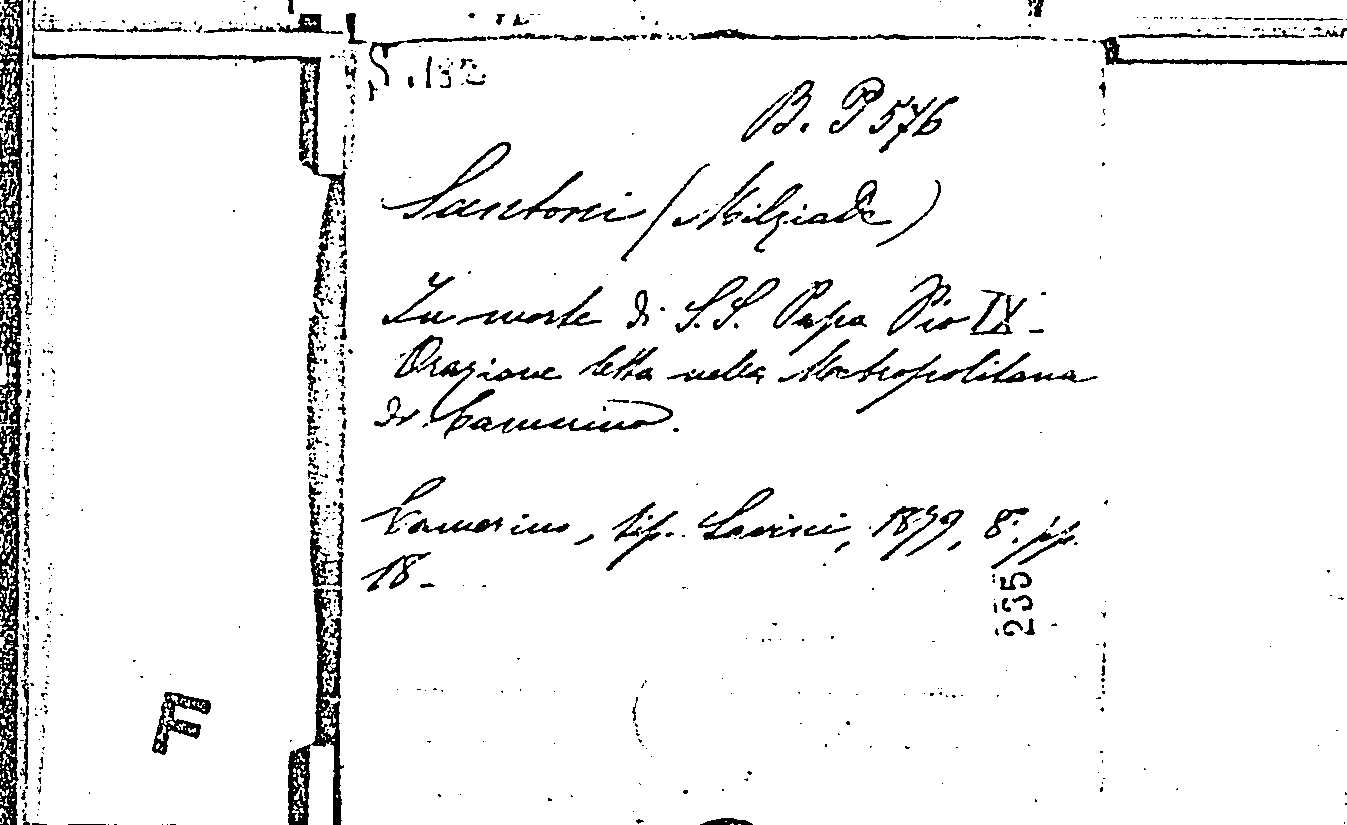 S. 132
B. P 576
Santoni (Milziade)
In morte di S.S. Papa Pio IX -
Orazione letta nella Metropolitana
di Camerino.
Camerino, tip. Savini, 1879, 8.° pp.
18 -
235
F